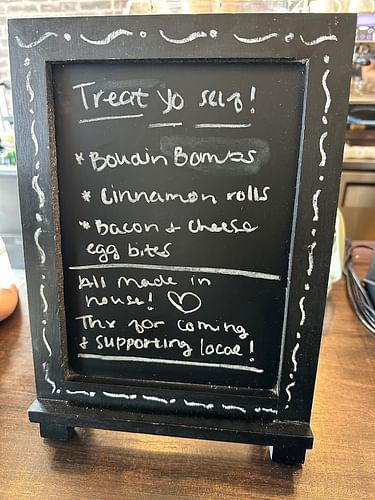 Treat yo self!
* Boudin Bombs
* Cinnamon rolls
* Bacon + cheese
egg bites
All made in
house! ♡
Thx for coming
+ supporting local!